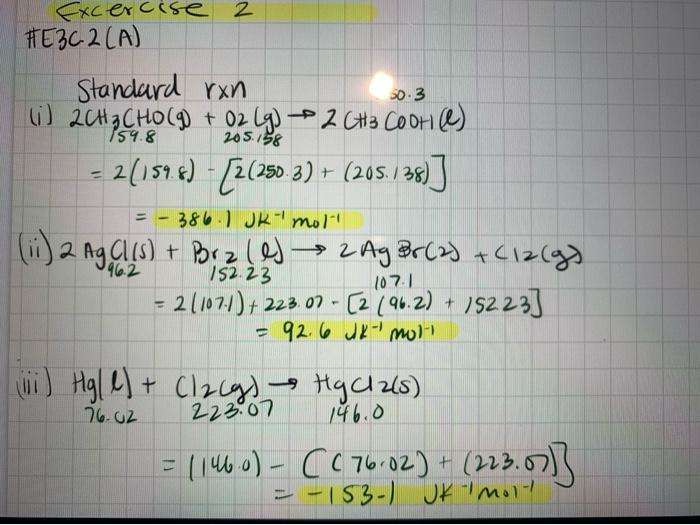 Excercise 2
#E3C-2(A)
Standard rxn
50.3
(i) 2CH3CHO(g) + O2(g) → 2 CH3COOH(l)
159.8 205.138
= 2(159.8) - [2(250.3) + (205.138)]
= - 386.1 JK-1 mol-1
(ii) 2 AgCl(s) + Br2(l) → 2AgBr(2) + Cl2(g)
96.2 152.23 107.1
= 2(107.1) + 223.07 - [2(96.2) + 152.23]
= 92.6 JK-1 mol-1
(iii) Hg(l) + Cl2(g) → HgCl2(s)
76.02 223.07 146.0
= (146.0) - [(76.02) + (223.07)]
= -153-1 JK-1mol-1